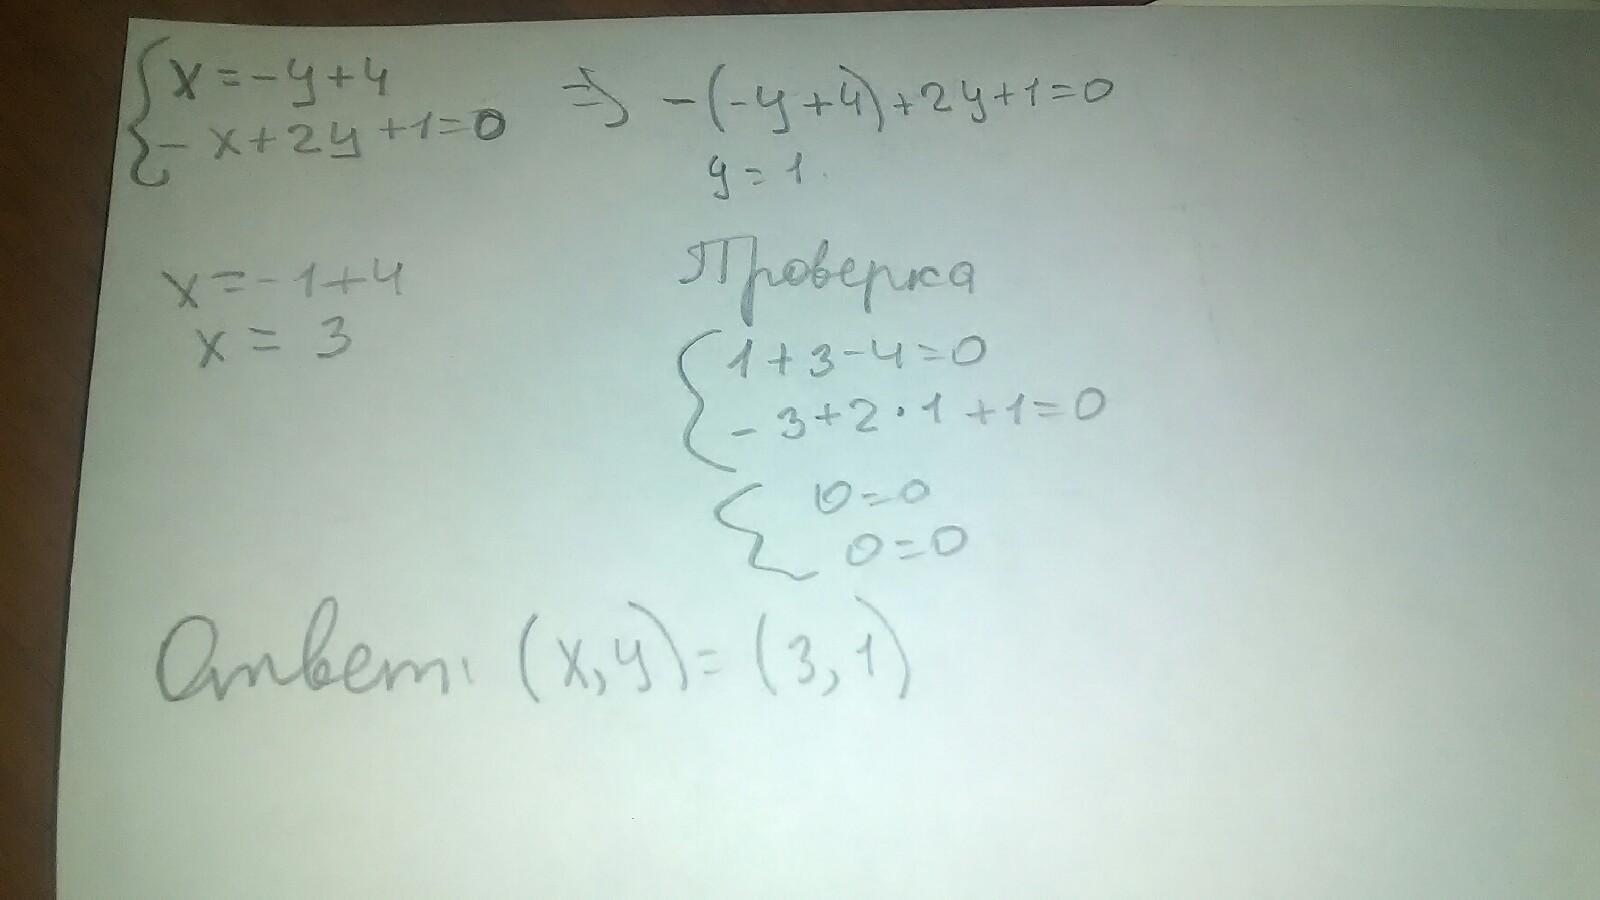 x=-y+4 ⇒ -(-y+4)+2y+1=0
-x+2y+1=0
y=1.
x=-1+4
x=3
Проверка
1+3-4=0
-3+2·1+1=0
0=0
0=0
Ответ: (x,y)=(3,1)